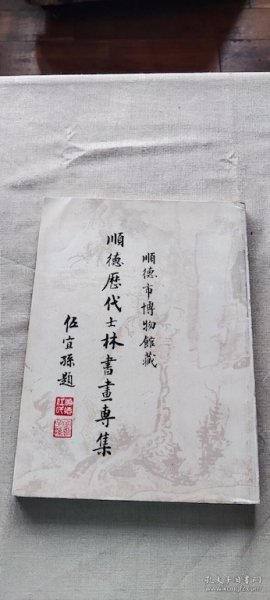 順德市博物館藏
順德歷代士林書畫專集
伍宜孫題
孔夫子旧书网